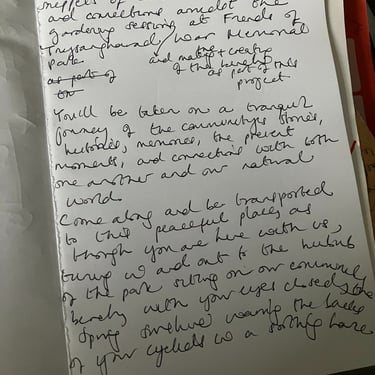 snippets of
and connections amidst the
gardening sessions at Friends of
Ynysangharad War Memorial
Park and making the + creating
as part of of the bench
as part of this
project
You'll be taken on a tranquil
journey of the community's stories,
histories, memories, the present
moments, and connections with both
one another and our natural
world.
Come along and be transported
to this peaceful places as
though you are here with us,
tuning in and out to the hubub
of the park sitting on our communal
bench with your eyes closed, the
Spring sunshine warming the backs
of your eyelids in a soothing haze